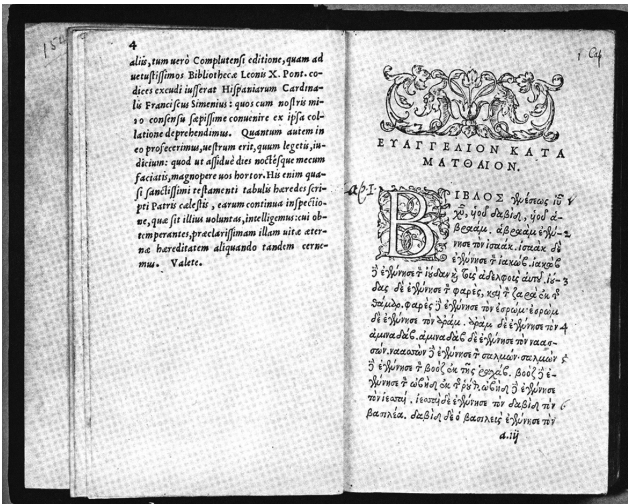 4
aliis, tum uerò Complutensi editione, quam ad
uetustissimos Bibliothecæ Leonis X. Pont. co-
dices excudi iusserat Hispaniarum Cardina-
lis Franciscus Simenius: quos cum nostris mi-
ro consensu sæpissime conuenire ex ipsa col-
latione deprehendimus. Quantum autem in
eo profecerimus, uestrum erit, quum legetis, iu-
dicium: quod ut assiduè dies noctésque mecum
faciatis, magnopere uos hortor. His enim qua-
si sanctissimi testamenti tabulis hæredes scri-
pti Patris cælestis, earum continua inspectio-
ne, quæ sit illius uoluntas, intelligemus: cui ob-
temperantes, præclarissimam illam uitæ æter-
næ hæreditatem aliquando tandem cerne-
mus. Valete.
ΕΥΑΓΓΕΛΙΟΝ ΚΑΤΑ
ΜΑΤΘΑΙΟΝ.
ΒΙΒΛΟΣ γενέσεως ἰυ
χυ, υἱοῦ δαβὶδ, υἱοῦ ἀ-
βραάμ. ἀβραὰμ ἐγέν- 2
νησε τὸν ἰσαάκ. ἰσαὰκ δὲ
ἐγέννησε τ ἰακώβ. ἰακὼβ
δ ἐγέννησε τ ἰούδαν καὶ τοὺς ἀδελφοὺς αὐτοῦ. ἰού- 3
δας δὲ ἐγέννησε τ φαρὲς, καὶ τ ζαρὰ ἐκ τ
θάμαρ. φαρὲς δ ἐγέννησε τὸν ἐσρώμ. ἐσρὼμ
δὲ ἐγέννησε τὸν ἀράμ. ἀρὰμ δὲ ἐγέννησε τὸν 4
ἀμιναδάβ. ἀμιναδὰβ δὲ ἐγέννησε τὸν ναασ-
σών. ναασσὼν δ ἐγέννησε τ σαλμών. σαλμὼν 5
δ ἐγέννησε τ βοὸζ ἐκ τῆς ῥαχάβ. βοὸζ δ ἐ-
γέννησε τ ὠβὴδ ἐκ τ ῥούθ. ὠβὴδ δ ἐγέννησε
τὸν ἰεσσαί. ἰεσσαὶ δὲ ἐγέννησε τὸν δαβὶδ τὸν 6
βασιλέα. δαβὶδ δὲ ὁ βασιλεὺς ἐγέννησε τὸν
a.iij